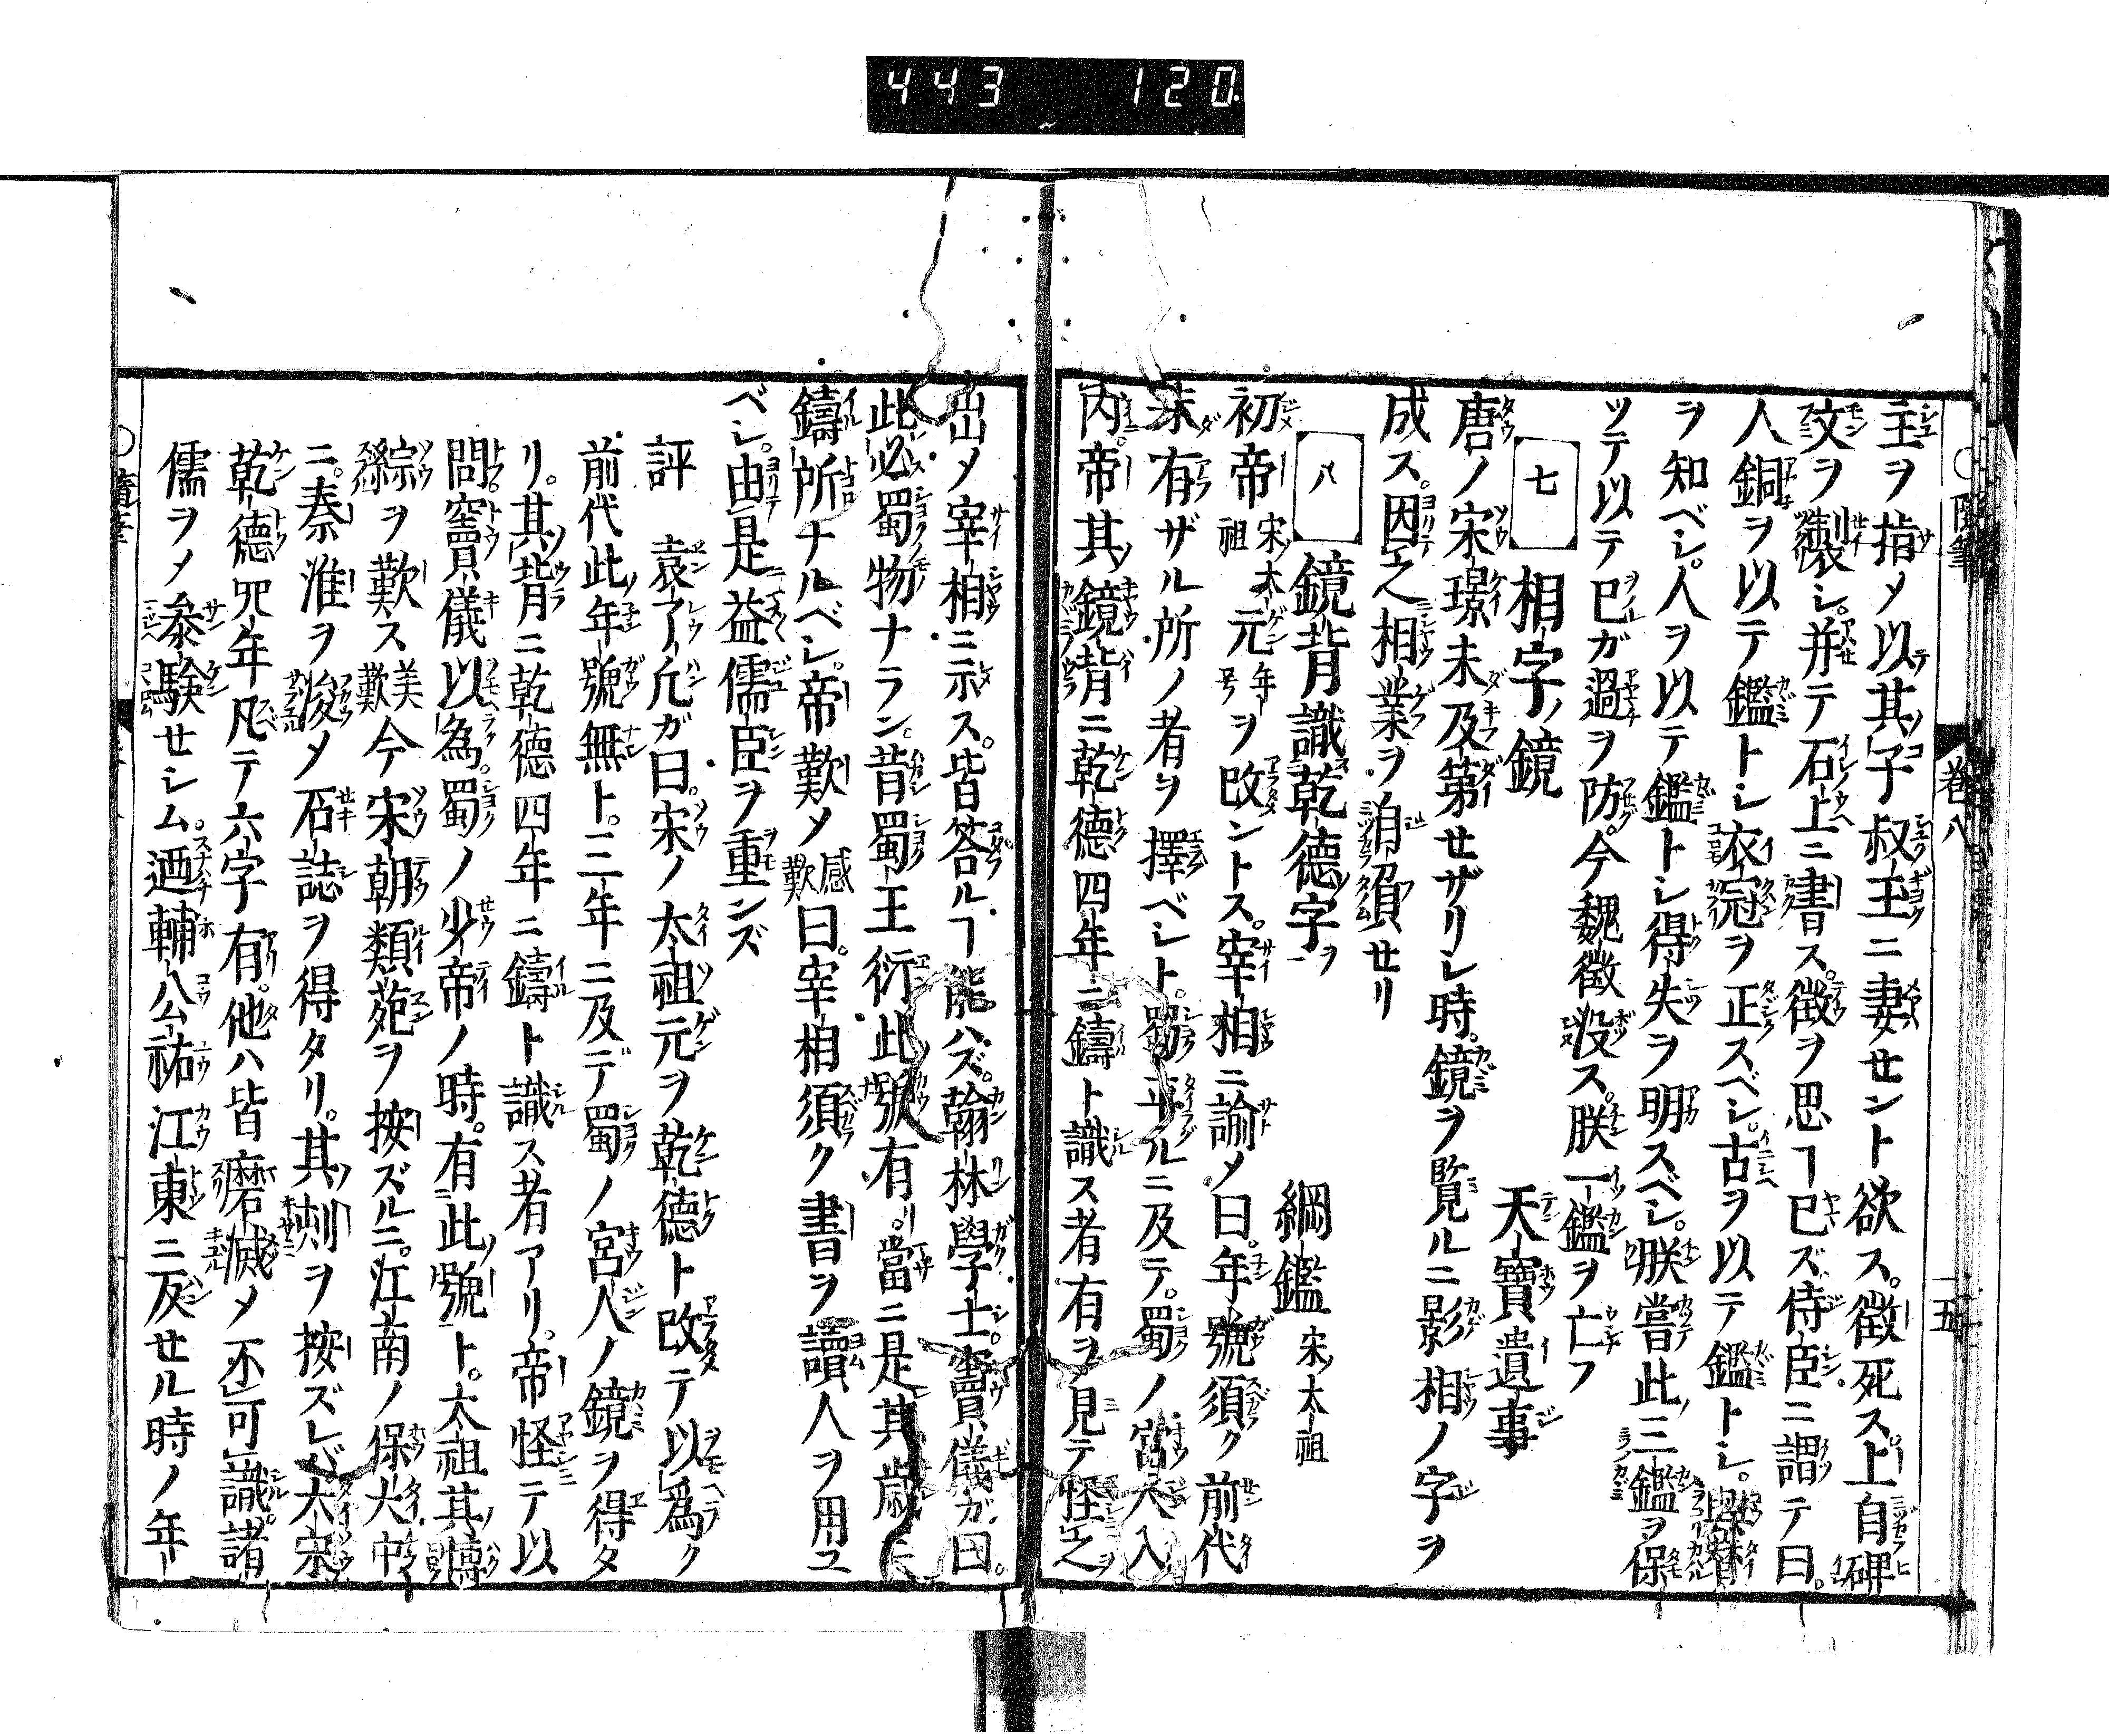 443 120
○隨筆 卷八 五
主ヲ指メ以其子叔王ニ妻セント欲ス。徴死ス上自碑
文ヲ製シ。并テ石上ニ書ス。徴ヲ思ヿ已ズ侍臣ニ謂テ曰。
人銅ヲ以テ鑑トシ衣冠ヲ正スベシ。古ヲ以テ鑑トシ。興替
ヲ知ベシ。人ヲ以テ鑑トシ得失ヲ明スベシ。朕嘗此三鑑ヲ保
ツテ以テ已ガ過ヲ防。今魏徴没ス。朕一鑑ヲ亡フ
七 相字ノ鏡 天寶遺事
唐ノ宋璟未及第セザリシ時。鏡ヲ覧ルニ影相ノ字ヲ
成ス。因之相業ヲ自負せリ
八 鏡背識乾德字ヲ 綱鑑 宋ノ太祖
初帝宋ノ太祖元年号ヲ改ントス。宰相ニ諭メ曰。年號須ク前代
未有ザル所ノ者ヲ擇ベシト。蜀平ルニ及テ。蜀ノ宮人入
内。帝其鏡背ニ乾德四年ニ鑄ト識ス者有ヲ見テ怪之
出メ宰相ニ示ス。皆答ルヿ能ハズ。翰林學士。竇儀ガ曰。
此必蜀物ナラン。昔蜀王衍此號有リ。當ニ是其歳ニ
鑄所ナルベシ。帝歎メ感歎曰。宰相須ク書ヲ讀人ヲ用ユ
ベシ。由是益儒臣ヲ重ンズ
評 袁了凡ガ曰。宋ノ太祖元ヲ乾德ト改テ以爲ク
前代此年號無ト。三年ニ及デ蜀ノ宮人ノ鏡ヲ得タ
リ。其背ニ乾德四年ニ鑄ト識ス者アリ。帝怪テ以
問。竇儀以為。蜀ノ少帝ノ時。有此號ト。太祖其博
綜ヲ歎ス美歎今宋朝類苑ヲ按ズルニ。江南ノ保大中
ニ。秦淮ヲ浚メ石誌ヲ得タリ。其刻ヲ按ズレバ大宋
乾德四年凡テ六字有。他ハ皆磨滅メ不可識。諸
儒ヲメ參験セシム。廼輔公祏江東ニ反セル時ノ年
○隨筆